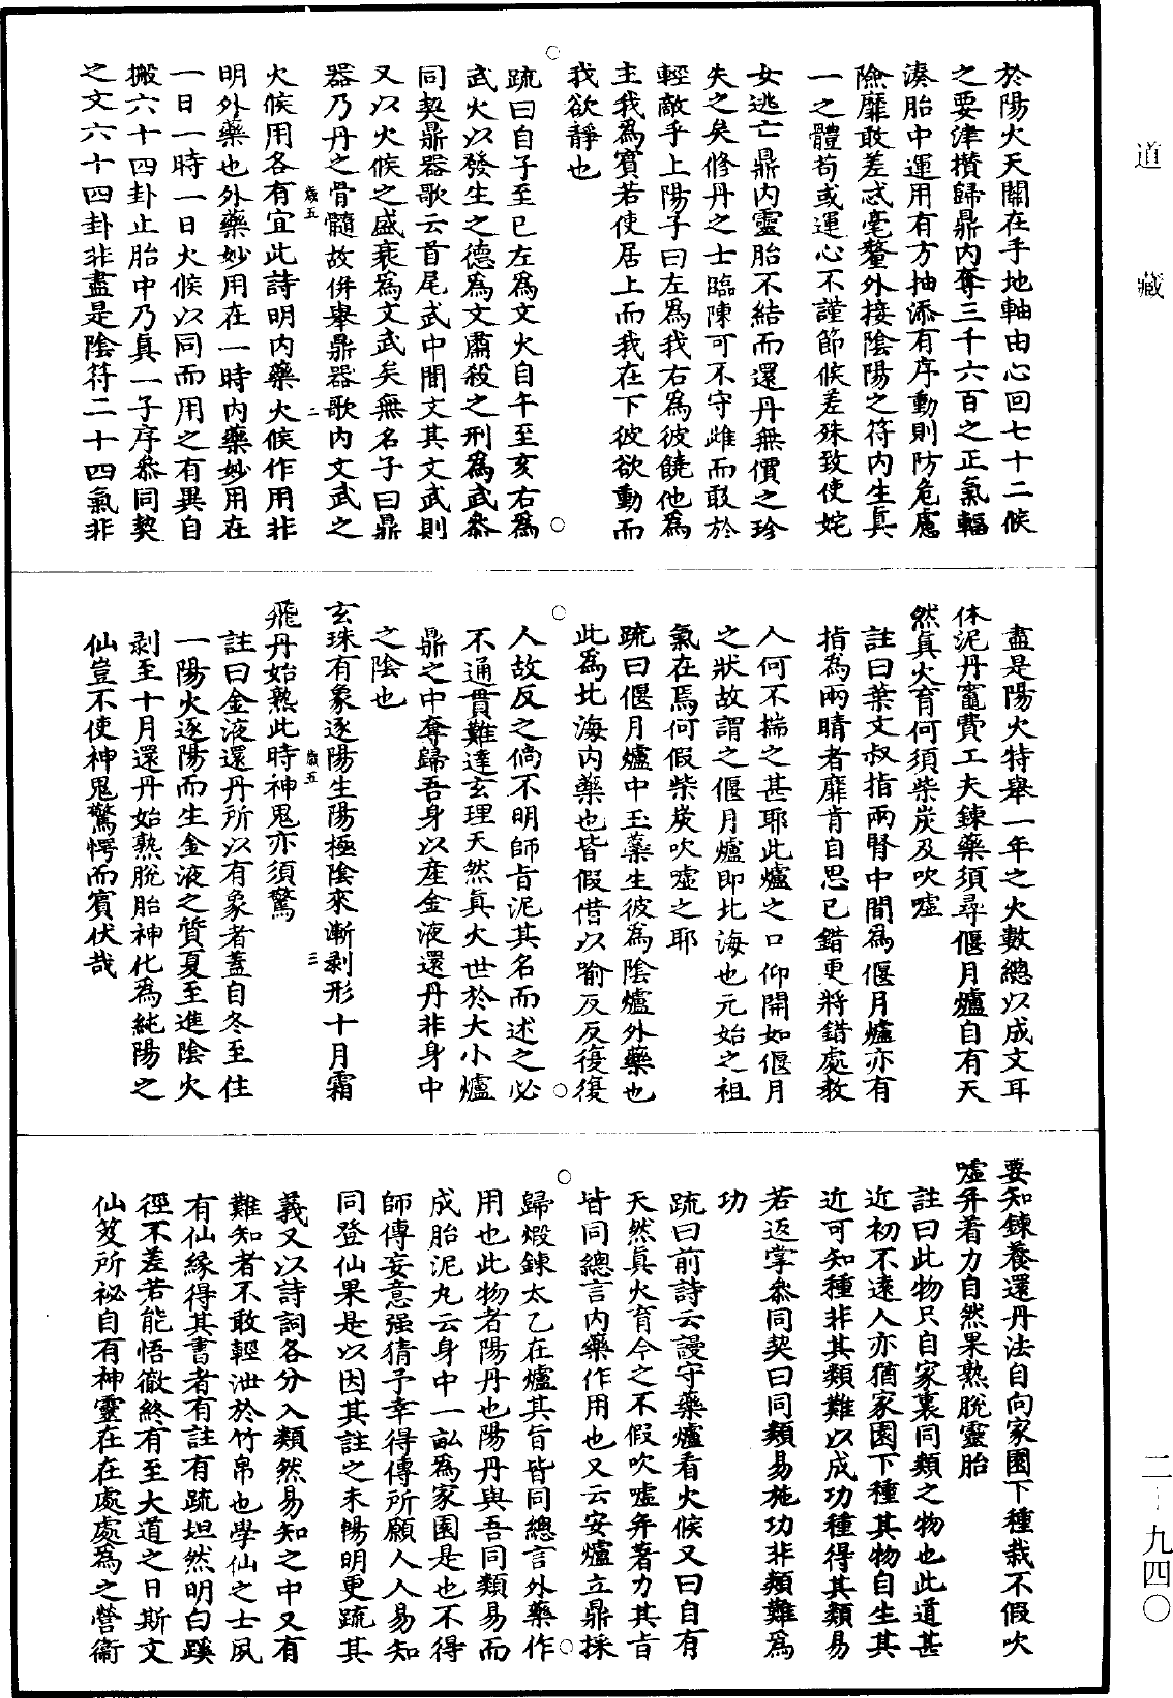 道藏
於陽火天關在手地軸由心回七十二候
之要津攢歸鼎內奪三千六百之正氣輻
湊胎中運用有方抽添有序動則防危慮
險靡敢差忒毫釐外接陰陽之符內生真
一之體苟或運心不謹節候差殊致使姹
女逃亡鼎內靈胎不結而還丹無價之珍
失之矣修丹之士臨陳可不守雌而敢於
輕敵乎上陽子曰左為我右為彼饒他為
主我為賓若使居上而我在下彼欲動而
我欲靜也
疏曰自子至巳左為文火自午至亥右為
武火以發生之德為文肅殺之刑為武叅
同契鼎器歌云首尾武中間文其文武則
又以火候之盛衰為文武矣無名子曰鼎
器乃丹之骨髓故併舉鼎器歌內文武之
歲五 二
火候用各有宜此詩明內藥火候作用非
明外藥也外藥妙用在一時內藥妙用在
一日一時一日火候以同而用之有異自
搬六十四卦止胎中乃真一子序叅同契
之文六十四卦非盡是陰符二十四氣非
盡是陽火特舉一年之火數總以成文耳
休泥丹竈費工夫鍊藥須尋偃月爐自有天
然真火育何須柴炭及吹噓
註曰葉文叔指兩腎中間為偃月爐亦有
指為兩睛者靡肯自思已錯更將錯處教
人何不揣之甚耶此爐之口仰開如偃月
之狀故謂之偃月爐即北海也元始之祖
氣在焉何假柴炭吹噓之耶
疏曰偃月爐中玉藥生彼為陰爐外藥也
此為北海內藥也皆假借以喻反反復復
人故反之倘不明師旨泥其名而述之必
不通貫難達玄理天然真火世於大小爐
鼎之中奪歸吾身以產金液還丹非身中
之陰也
玄珠有象逐陽生陽極陰來漸剥形十月霜
歲五 三
飛丹始熟此時神鬼亦須驚
註曰金液還丹所以有象者蓋自冬至住
一陽火逐陽而生金液之質夏至進陰火
剥至十月還丹始熟脫胎神化為純陽之
仙豈不使神鬼驚愕而賓伏哉
要知鍊養還丹法自向家園下種栽不假吹
噓并着力自然果熟脫靈胎
註曰此物只自家裏同類之物也此道甚
近初不遠人亦猶家園下種其物自生其
近可知種非其類難以成功種得其類易
若返掌叅同契曰同類易施功非類難為
功
疏曰前詩云謾守藥爐看火候又曰自有
天然真火育今之不假吹噓并著力其旨
皆同總言內藥作用也又云安爐立鼎採
歸煅鍊太乙在爐其旨皆同總言外藥作
用也此物者陽丹也陽丹與吾同類易而
成胎泥丸云身中一畝為家園是也不得
師傳妄意强猜予幸得傳所願人人易知
同登仙果是以因其註之未暢明更疏其
義又以詩詞各分入類然易知之中又有
難知者不敢輕泄於竹帛也學仙之士夙
有仙緣得其書者有註有疏坦然明白蹊
徑不差若能悟徹終有至大道之日斯文
仙笈所祕自有神靈在在處處為之營衞
二-九四〇